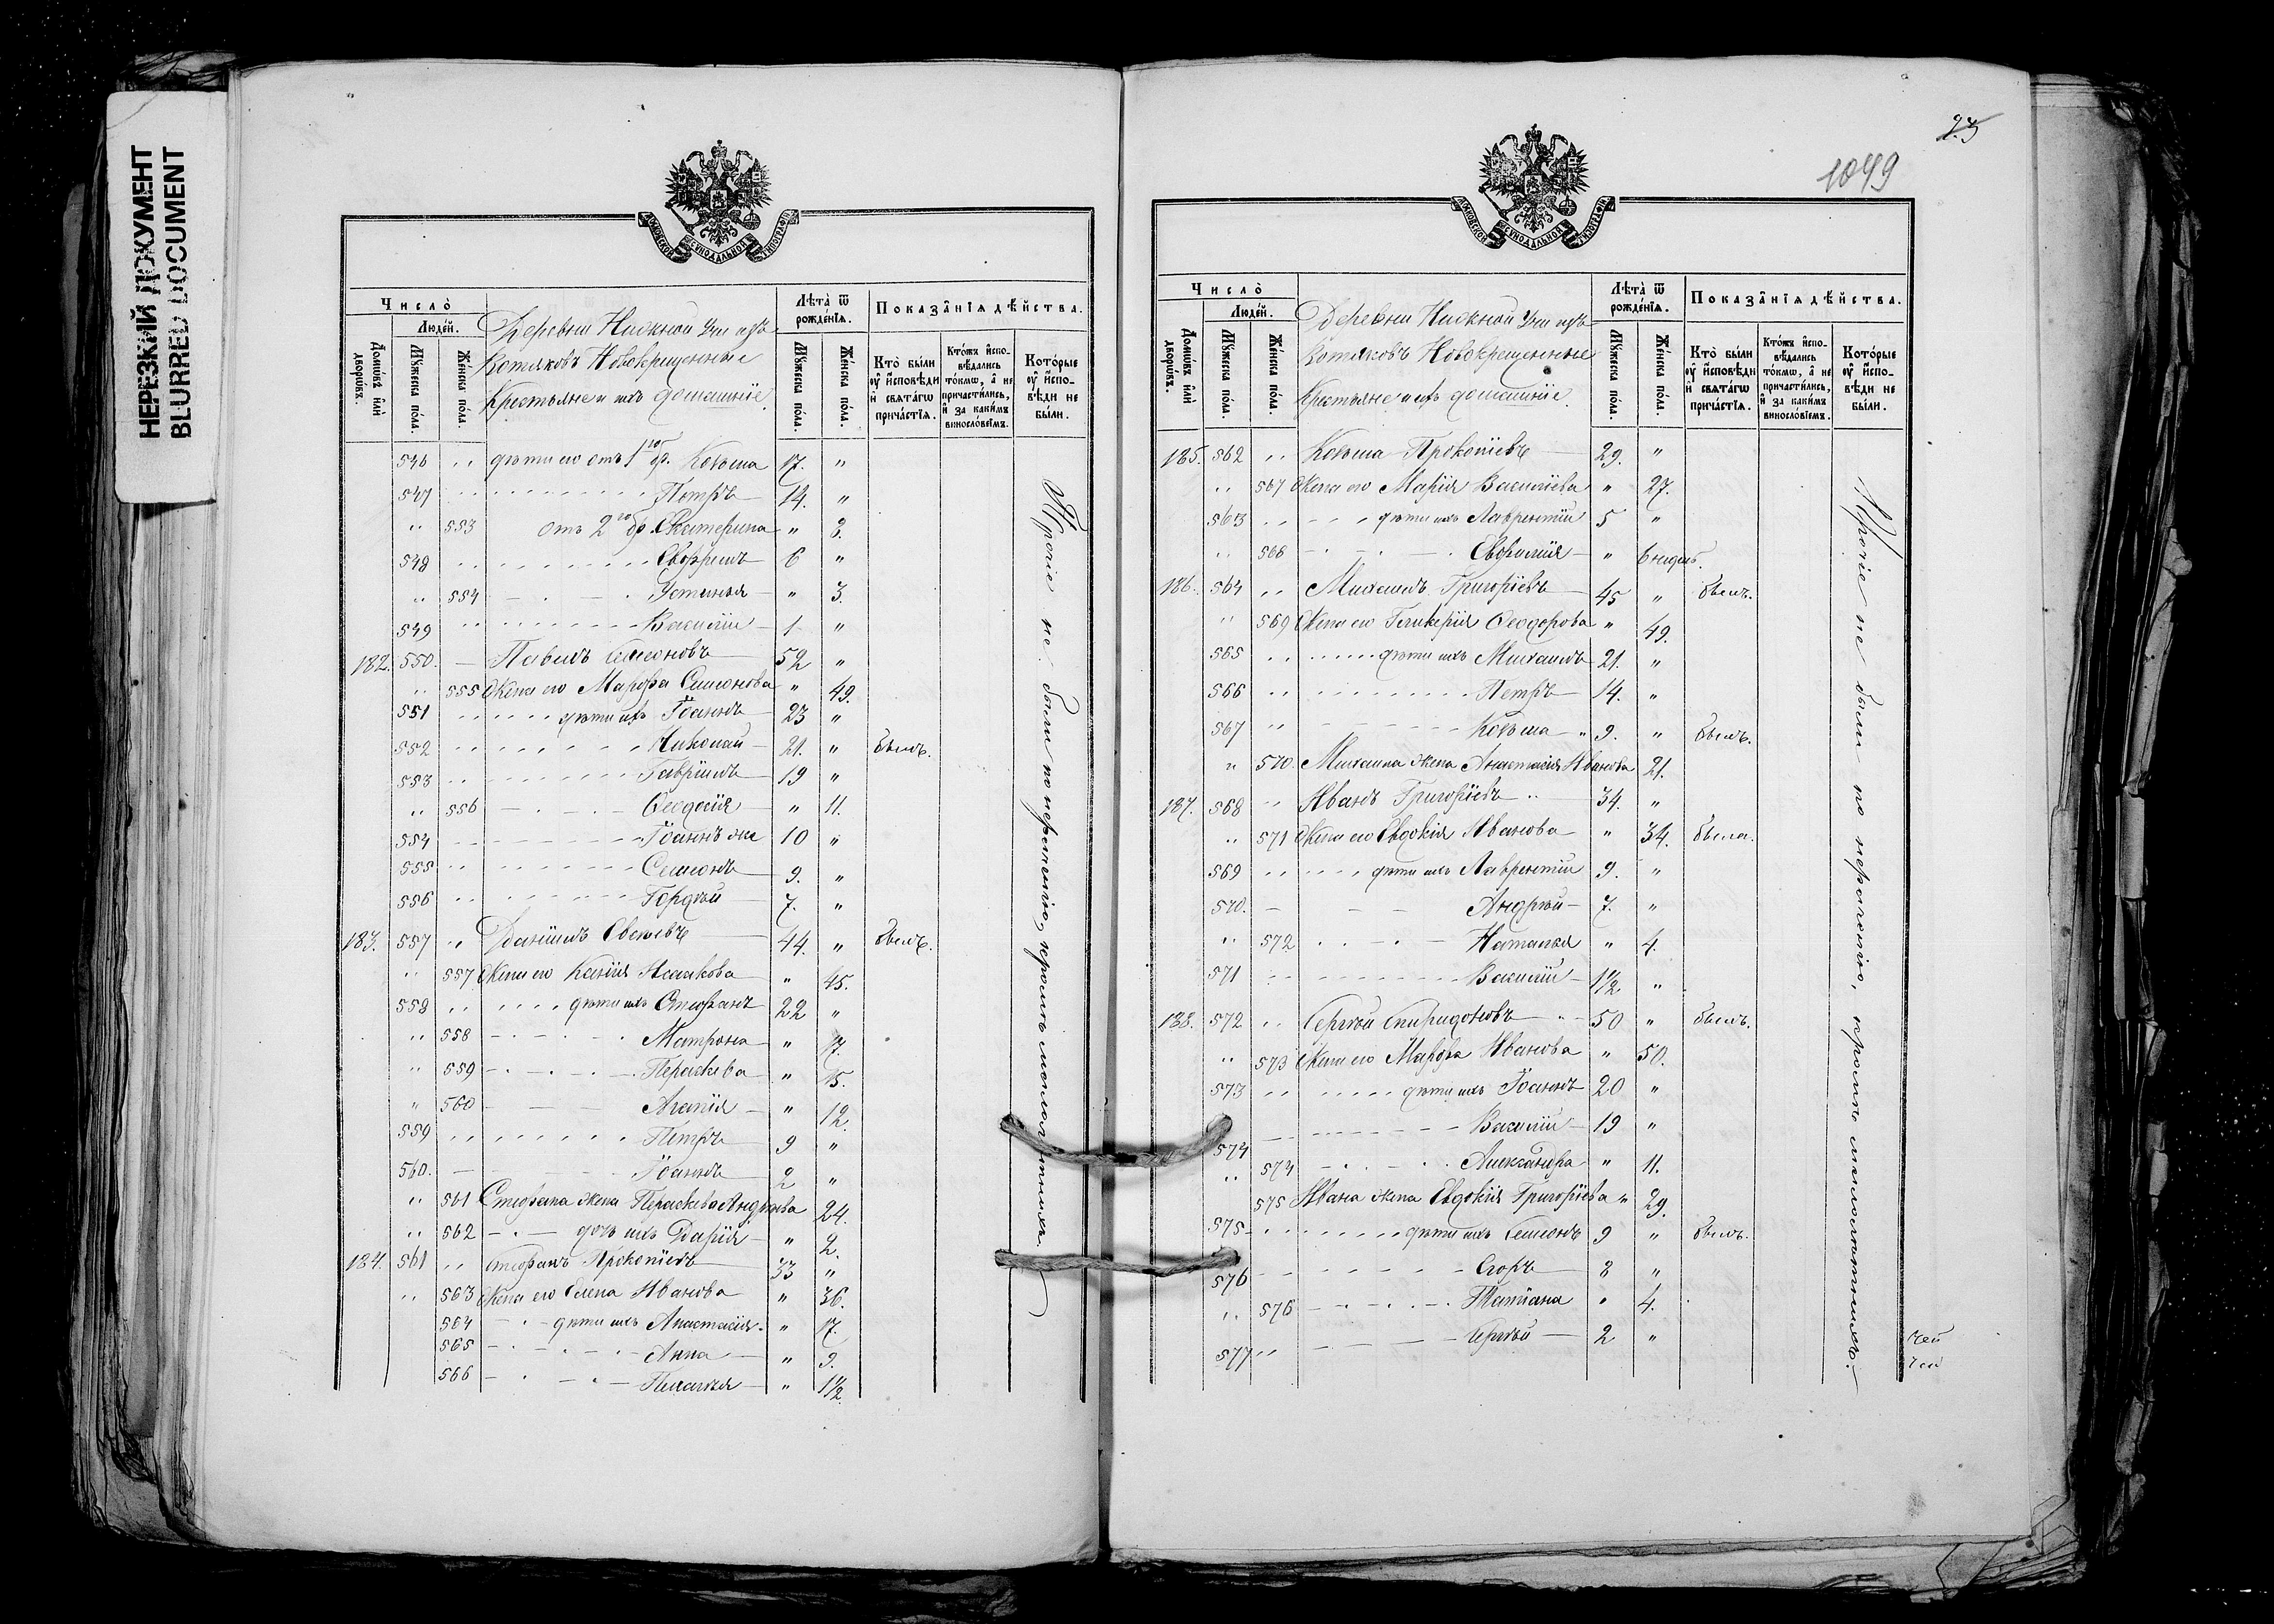 НЕРЕЗКИЙ ДОКУМЕНТ
BLURRED DOCUMENT
МОСКОВСКОЙ СѴНОДАЛЬНОЙ ТИПОГРАФІИ
Число̀
Людей.
Домѡвъ илѝ дворѡвъ.
Мꙋжеска пола.
Женска пола.
Деревни Нижной Учи изъ
Вотяковъ Новокрещенные
Крестьяне и ихъ домашніе.
Лѣта̀ ѿ рожденїѧ.
Мꙋжеска пола.
Женска пола.
Показанїѧ дѣйства.
Кто̀ были оу исповѣди и свѧтагѡ причастїѧ.
Ктожъ исповѣдались токмѡ, а не причастились, и за какимъ винословїемъ.
Которые оу исповѣди не были.
546 " дѣти его отъ 1го бр. Козьма 17. "
547 " Петръ 14. "
" 553 отъ 2го бр. Екатерина " 8.
548 " Ефремъ 6 "
" 554 Устинья " 3.
549 " Василій 1 "
182. 550. Павелъ Симеоновъ 52 "
" 555 Жена его Марфа Симонова " 49.
551 " дѣти ихъ Іоаннъ 23 "
552 " Николай 21. " былъ.
553 " Гавріилъ 19 "
" 556 Ѳеодосія " 11.
554 " Іоаннъ же 10 "
555 " Семіонъ 9. "
556 " Гордѣй 7. "
183. 557 " Даніилъ Евсѣевъ 44. " былъ.
" 557 Жена его Ксенія Исаакова " 45.
558 " дѣти ихъ Стефанъ 22 "
" 558 Матрона " 17.
" 559 Параскева " 15.
" 560 Агапія " 12.
559 " Петръ 9 "
560. Іоаннъ 2 "
" 561 Стефана жена Параскева Андреева 24.
" 562 дочь ихъ Дарія " 2.
184. 561 " Стефанъ Прокопіевъ 33 "
" 563 Жена его Елена Иванова " 36.
564 дѣти ихъ Анастасія " 17.
565 Анна " 9.
566 Пелагея " 1½.
Прочіе не были по нераченію, кромѣ малолѣтнихъ.
1049
Число̀
Людей.
Домѡвъ илѝ дворѡвъ.
Мꙋжеска пола.
Женска пола.
Деревни Нижной Учи изъ
Вотяковъ Новокрещенные
Крестьяне и ихъ домашніе.
Лѣта̀ ѿ рожденїѧ.
Мꙋжеска пола.
Женска пола.
Показанїѧ дѣйства.
Кто̀ были оу исповѣди и свѧтагѡ причастїѧ.
Ктожъ исповѣдались токмѡ, а не причастились, и за какимъ винословїемъ.
Которые оу исповѣди не были.
185. 562 " Козьма Прокопіевъ 29. "
" 567 Жена его Марія Василіева " 27.
563 " дѣти ихъ Лаврентій 5 "
" 568 Евфимія " 6 недѣль.
186. 564 " Михаилъ Григоріевъ 45 " былъ.
" 569 Жена его Гликерія Ѳеодорова " 49.
565 " дѣти ихъ Михаилъ 21. "
566 " Петръ 14. "
567 " Козьма 9. " былъ.
" 570. Михаила жена Анастасія Иванова 21.
187. 568 " Иванъ Григоріевъ 34. "
" 571 Жена его Евдокія Иванова " 34. была.
569 " дѣти ихъ Лаврентій 9. "
570. Андрей 7. "
" 572 Наталья " 4.
571 Василій 1½ "
188. 572 " Сергѣй Спиридоновъ 50 " былъ.
" 573 Жена его Марфа Иванова " 50.
573 " дѣти ихъ Іоаннъ 20 "
574 Василій 19 "
" 574 Александра " 11.
575 Ивана жена Евдокія Григоріева " 29.
575 дѣти ихъ Семіонъ 9 " былъ.
576 Егоръ 8 "
" 576 Татіана " 4.
577 " Сергѣй 2 "
Прочіе не были по нераченію, кромѣ малолѣтнихъ.